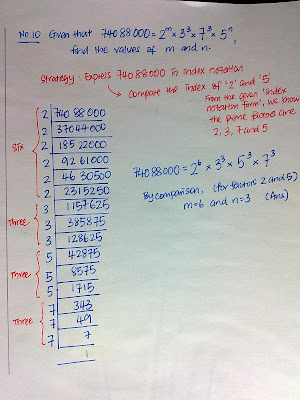 No.10 Given that 74088000 = 2ᵐ × 3³ × 7³ × 5ⁿ,
find the values of m and n.
Strategy: Express 74088000 in index notation
Compare the index of '2' and '5'
From the given 'index
notation form', we know
the prime factors are
2, 3, 7 and 5
2 74088000
2 37044000
2 18522000
Six
2 9261000
2 4630500
2 2315250
3 1157625
Three
3 385875
3 128625
5 42875
Three
5 8575
5 1715
7 343
Three
7 49
7 7
1
74088000 = 2⁶ × 3³ × 5³ × 7³
By comparison, (for factors 2 and 5)
m=6 and n=3 (Ans)